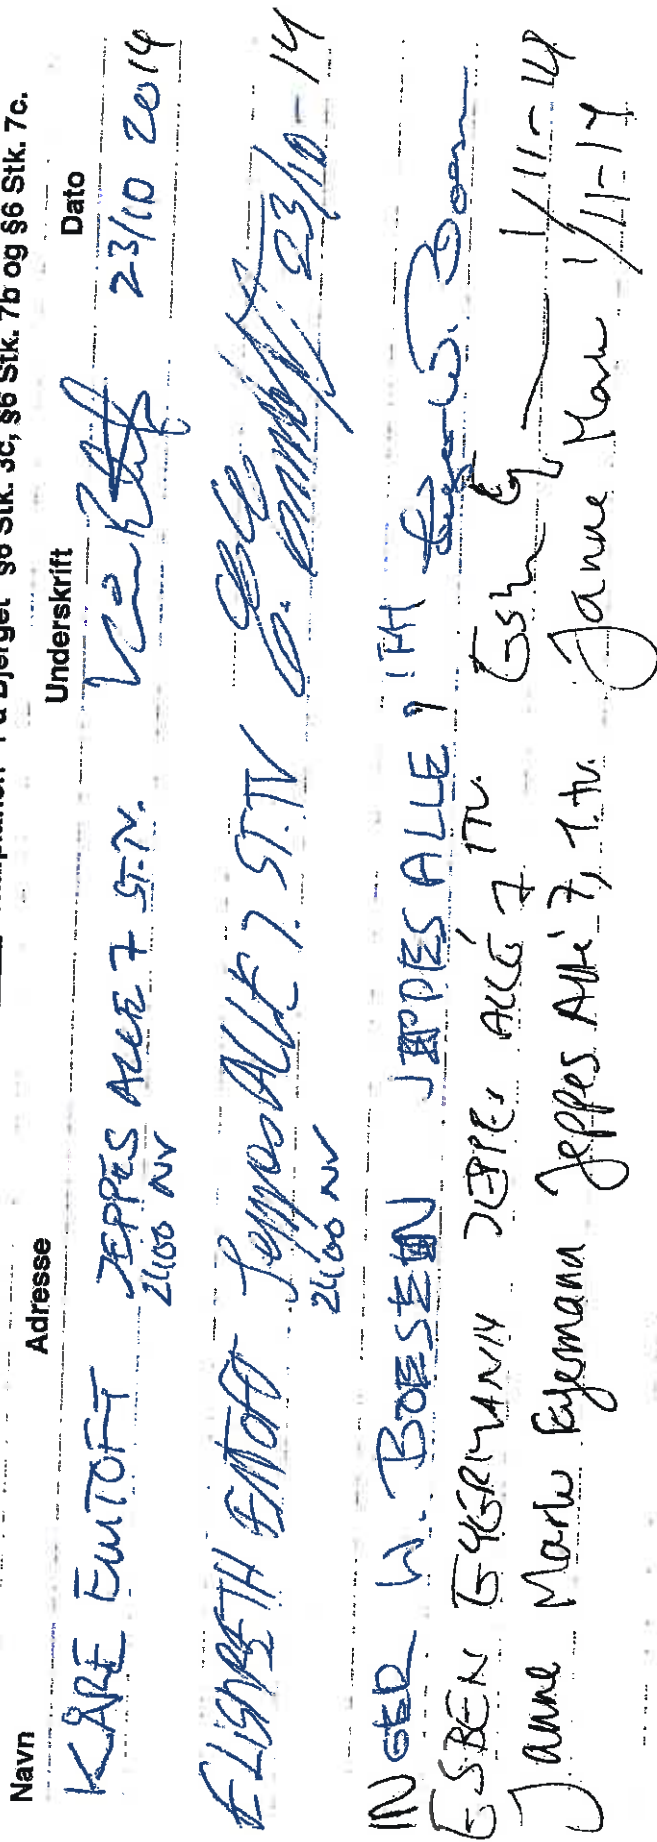 "På Bjerget" §6 Stk. 3c, §6 Stk. 7b og §6 Stk. 7c.
Navn Adresse Underskrift Dato
KÅRE EMTOFT JEPPES ALLE 7 ST.TV. 23/10 2014
2400 NV
ELISABETH EMTOFT Jeppes ALLE 7. ST.TV 23/10-14
2400 NV
INGER W. BOESEN JEPPES ALLE 9 1TH Inger W. Boesen
ESBEN JEPPES ALLÉ 7 1TV. 1/11-14
Janne Mark Jeppes Allé 7, 1.tv. Janne Mark 1/11-14